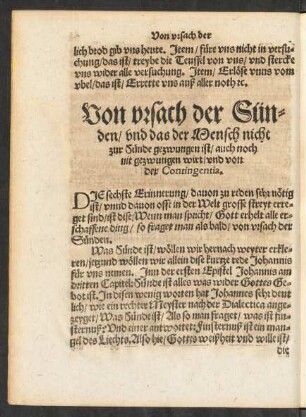 Von vrsach der
lich brod gib vns heute. Item/ füre vns nicht in versu-
chung/das ist/treybe die Teuffel von vns/vnd stercke
vns wider alle versuchung. Item/ Erlöse vnns vom
vbel/das ist/ Errette vns auß aller noth ꝛc.
Von vrsach der Sün-
den/ vnd das der Mensch nicht
zur Sünde gezwungen ist/ auch noch
nit gezwungen wirt/vnd von
der Contingentia.
DIE sechste Erinnerung/ dauon zu reden sehr nötig
ist/ vnnd dauon offt in der Welt grosse streyt erre-
get sind/ist dise/Wenn man spricht/ Gott erhelt alle er-
schaffene ding/ so fraget man als bald/ von vrsach der
Sünden.
Was Sünde ist/ wöllen wir hernach weyter erkle-
ren/jetzund wöllen wir allein dise kurtze rede Johannis
für vns nemen. Inn der ersten Epistel Johannis am
dritten Capitel: Sünde ist alles was wider Gottes Ge-
bot ist. In disen wenig worten hat Johannes sehr deut
lich/ wie ein rechter Meyster nach der Dialectica ange-
zeyget/ Was Sünde ist/ Als so man fraget/ was ist fin-
sternuß? Vnd einer antwortet: Finsternuß ist ein man-
gel des Liechts. Also hie/ Gottes weißheit vnd wille ist/
die